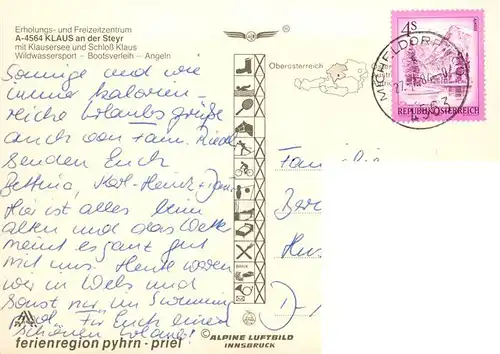 Erholungs- und Freizeitzentrum
A-4564 KLAUS an der Steyr
mit Klausersee und Schloß Klaus
Wildwassersport - Bootsverleih - Angeln
Oberösterreich
4S
REPUBLIK ÖSTERREICH
MICHELDORF
4563
Sonnige und wie
immer kalorien-
reiche Urlaubsgrüße
auch von Fam. Riedel
senden Euch
Bettina, Karl-Heinz + Jan.
Hier ist alles beim
alten und das Wetter
meint es ganz gut
mit uns. Heute waren
wir in Wels und
sonst nur im Swimming
pool. Für Euch einen
schönen Urlaub!
Fam
D-
ferienregion pyhrn - priel
© ALPINE LUFTBILD
INNSBRUCK